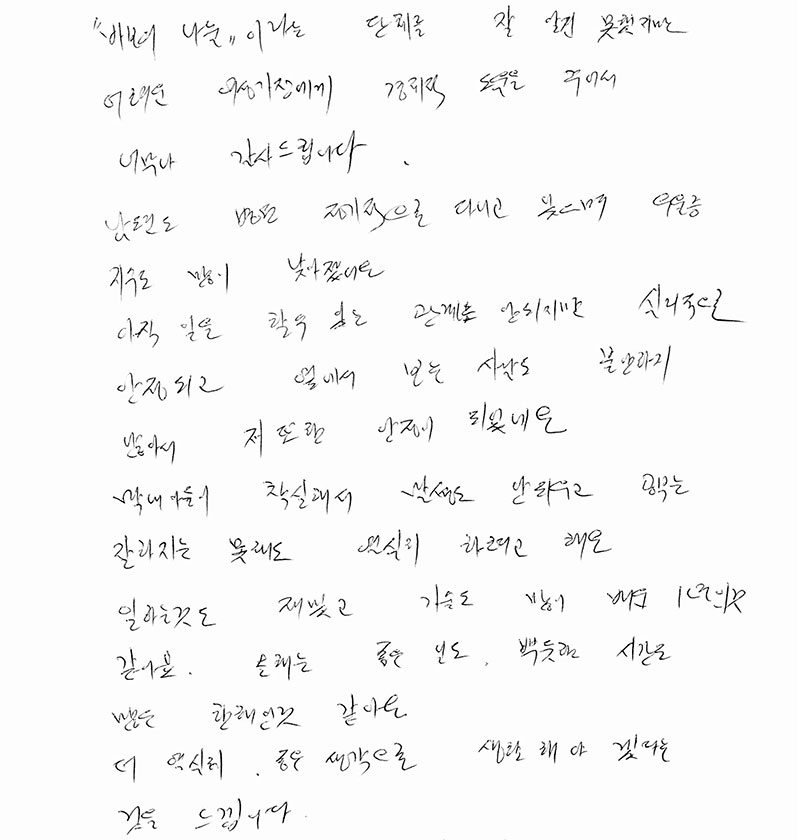 "바보의 나눔" 이라는 단체를 잘 알진 못했지만
어려운 여성가장에게 경제적 도움을 주어서
너무나 감사드립니다.
남편도 병원 정기적으로 다니고 있으며 우울증
지수도 많이 낮아졌어요
아직 일을 할수 있는 관계는 안되지만 심리적으로
안정되고 옆에서 보는 사람도 불안하지
않아서 저 또한 안정이 되었네요
막내아들이 착실해서 말썽도 안피우고 공부는
잘하지는 못해도 열심히 하려고 해요
일하는것도 재밌고 기술도 많이 배운 1년인것
같아요. 올해는 좋은 일도, 뿌듯한 시간도
많은 한해인것 같아요
더 열심히, 좋은 생각으로 생활해야 겠다는
것을 느낍니다.